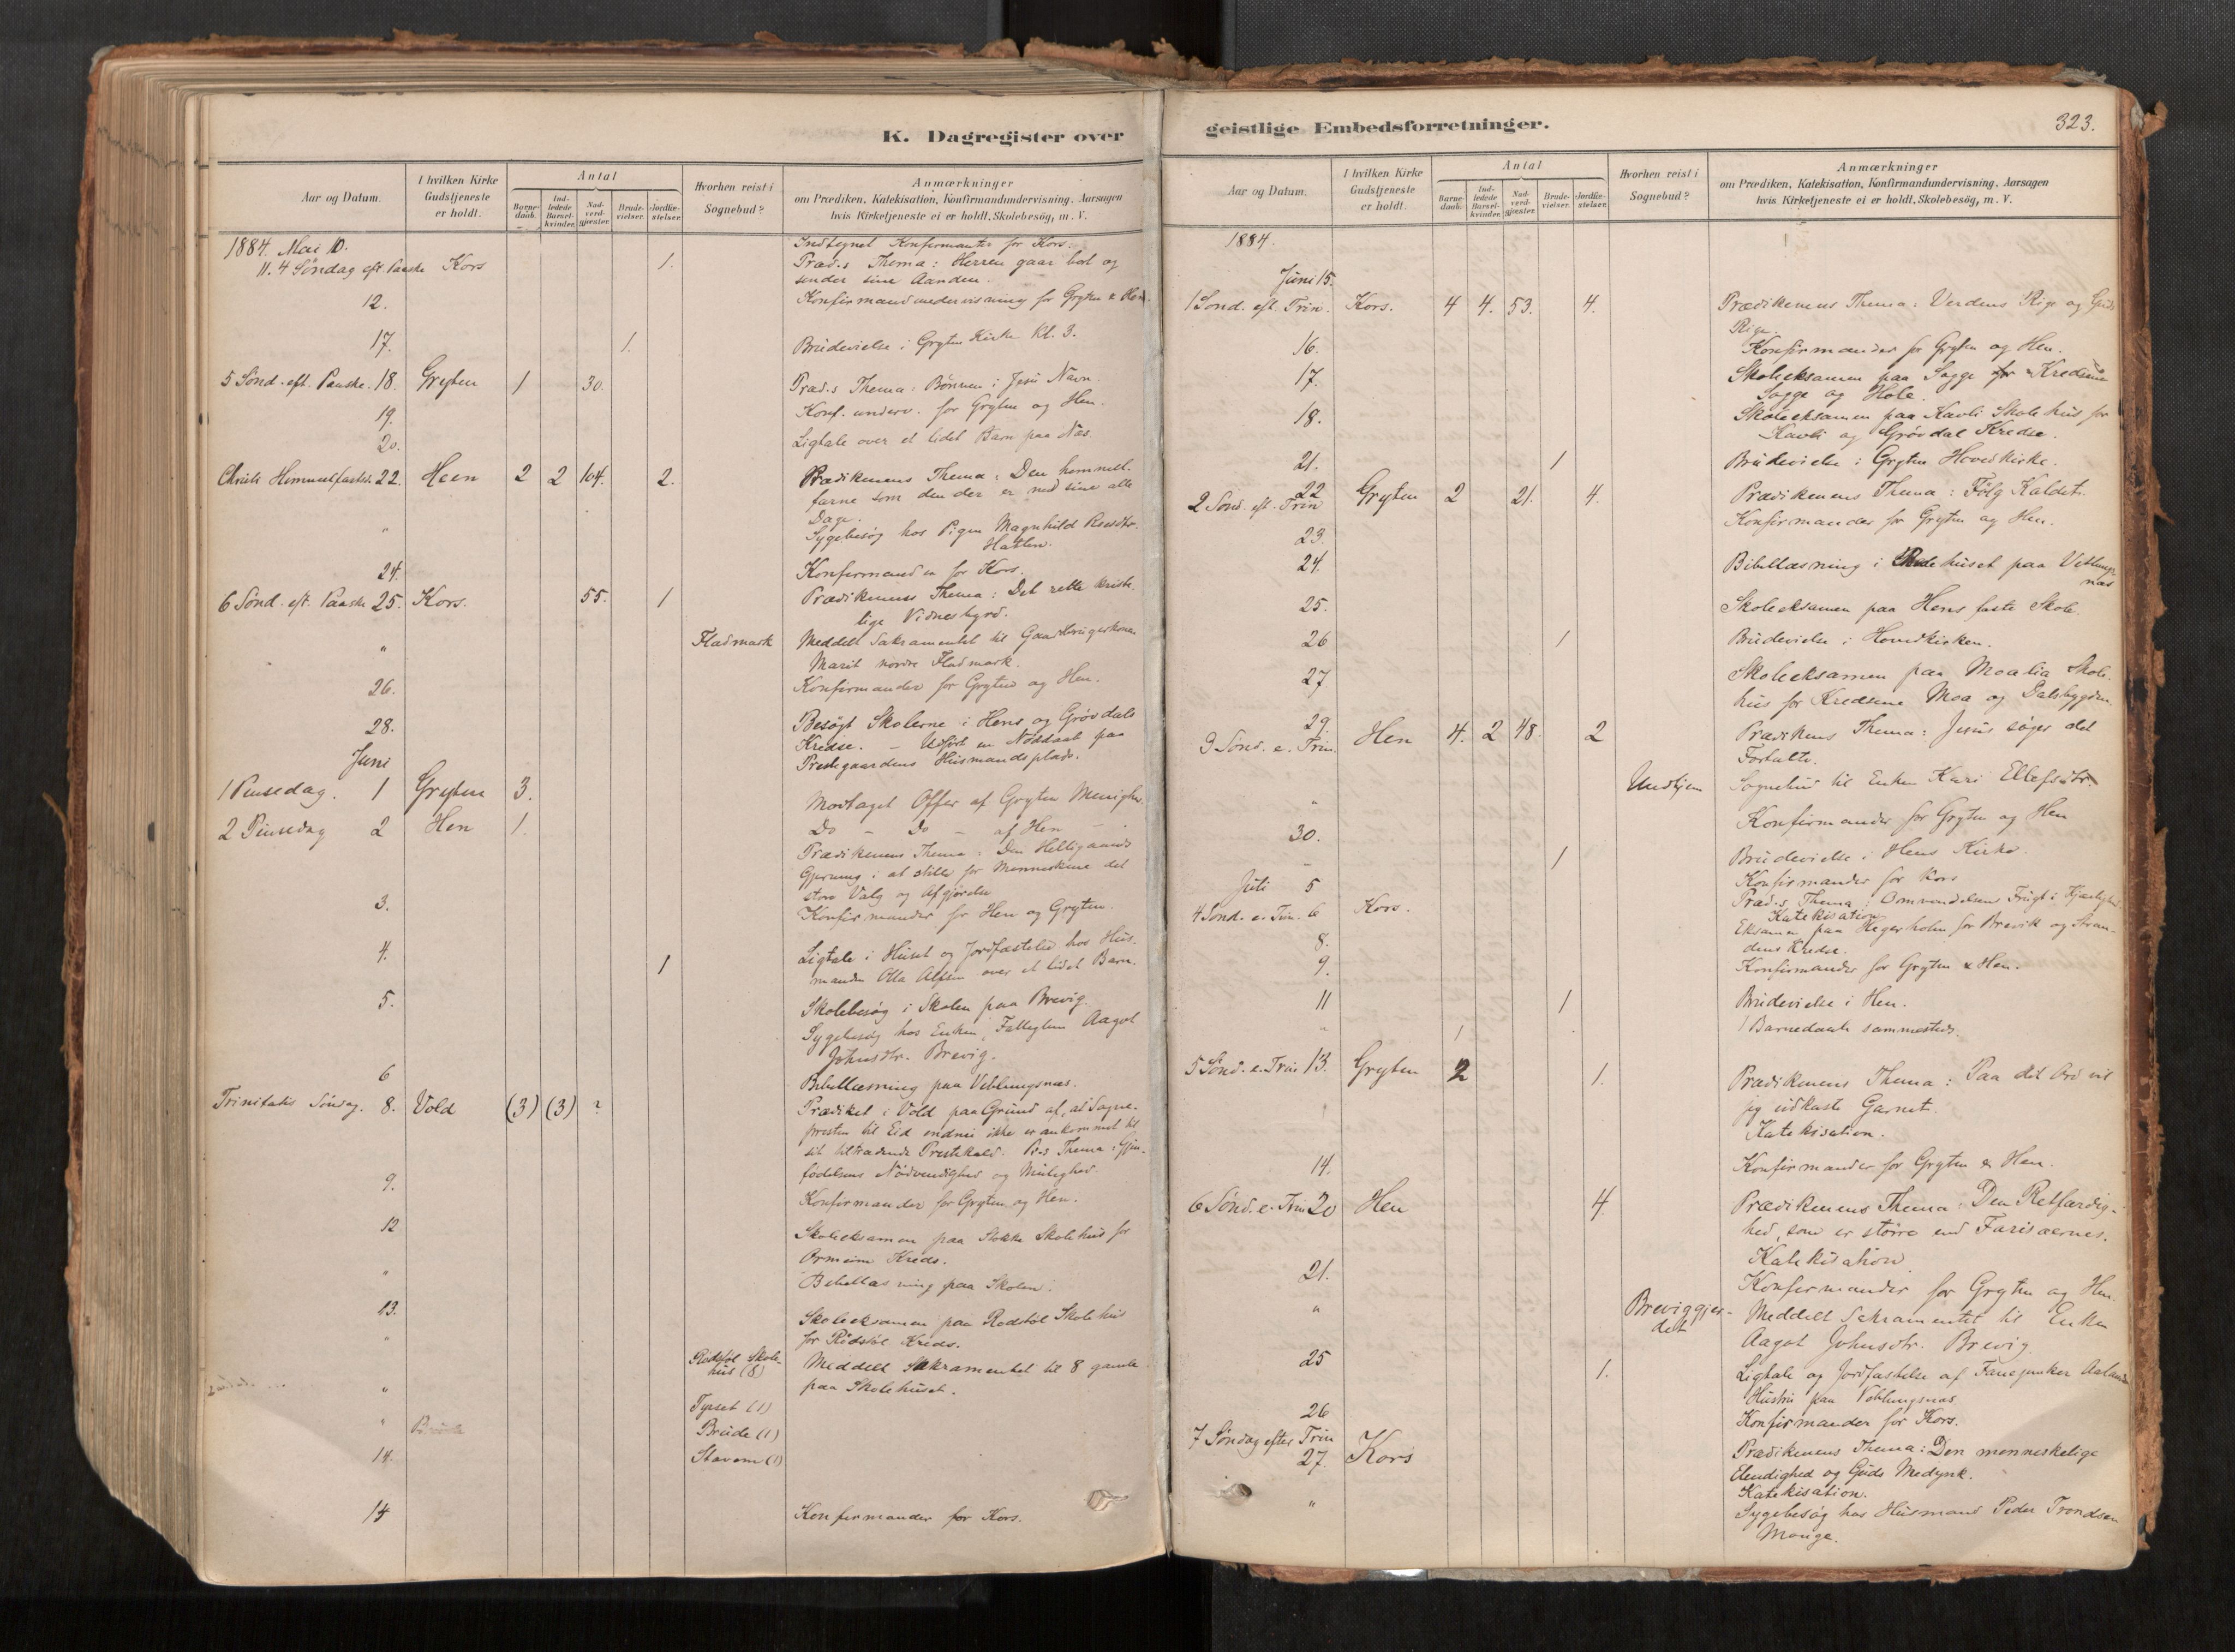 K. Dagregister over
Aar og Datum.
I hvilken Kirke Gudstjeneste er holdt.
Antal
Barne-daab.
Ind-ledede Barsel-kvinder.
Nad-verd-gjæster.
Brude-vielser.
Jordfæ-stelser.
Hvorhen reist i Sognebud?
Anmærkninger
om Prædiken, Katekisation, Konfirmandundervisning, Aarsagen
hvis Kirketjeneste ei er holdt, Skolebesög, m. V.
1884. Mai 10. Indtegnet Konfirmanter for Kors.
11. 4 Söndag eft. Paaske Kors 1. Præd.s Thema: Herren gaar bort og
sender sine Aanden.
12. Konfirmandundervisning for Gryten & Hen.
17. 1. Brudevielse i Gryten Kirke Kl. 3.
5 Sönd. eft. Paaske. 18. Gryten 1 30. Præd.s Thema: Bönnen i Jesu Navn.
19. Konf. underv. for Gryten og Hen.
20. Ligtale over et lidet Barn paa Næs.
Christi Himmelfartsd. 22. Heen 2 2 104. 2. Prædikenens Thema: Den himmel-
farne som den der er med sine alle
Dage.
" Sygebesög hos Pigen Magnhild
Hatlen.
24. Konfirmander for Kors.
6 Sönd. eft. Paaske 25. Kors. 55. 1 Prædikenens Thema: Det rette kriste-
lige Vidnesbyrd.
" Fladmark Meddelt Sakramentet til Gaardbrugerkonen
Marit nordre Fladmark.
26. Konfirmander for Gryten og Hen.
28. Besögt Skolerne i Hens og Grövdals
Kredse. – Udfört en Nöddaab paa
Prestegaardens Husmandsplads.
Juni
1 Pinsedag. 1 Gryten 3. Modtaget Offer af Gryten Menighed.
2 Pinsedag 2 Hen 1. Do – Do – af Hen –
Prædikenens Thema: Den Helligaands
Gjerning i at stille for Menneskene det
store Valg og Afgjörelse
3. Konfirmander for Hen og Gryten.
4. 1 Ligtale i Huset og Jordfæstelse hos Hus-
manden Ola Alfsen over et lidet Barn.
5. Skolebesög i Skolen paa Brevig.
Sygebesög hos Enken, Aagot
Johnsdtr. Brevig.
6 Bibellæsning paa Veblungsnæs.
Trinitatis Söndag. 8. Vold (3) (3) ? Prædiket i Vold paa Grund af, at Sogne-
presten til Eid endnu ikke er ankommet til
sit tiltrædende Prestekald. Pr.s Thema: Gjen-
födelsens Nödvendighed og Mulighed.
9. Konfirmander for Gryten og Hen.
12 Skoleeksamen paa Stokke Skolehus for
Ormeim Kreds.
" Bibellæsning paa Skolen.
13. Skoleeksamen paa Rödstöl Skolehus
" for Rödstöl Kreds.
Rödstöl Skole-
hus (8) Meddelt Sakramentet til 8 gamle
" paa Skolehuset.
Tyset (1)
" Brude Brude (1)
14. Stavem (1)
14 Konfirmander for Kors.
geistlige Embedsforretninger.
323.
Aar og Datum.
I hvilken Kirke Gudstjeneste er holdt.
Antal
Barne-daab.
Ind-ledede Barsel-kvinder.
Nad-verd-gjæster.
Brude-vielser.
Jordfæ-stelser.
Hvorhen reist i Sognebud?
Anmærkninger
om Prædiken, Katekisation, Konfirmandundervisning, Aarsagen
hvis Kirketjeneste ei er holdt, Skolebesög, m. V.
1884.
Juni 15.
1 Sönd. eft. Trin. Kors. 4 4. 53. 4. Prædikenens Thema: Verdens Rige og Guds
Rige.
16. Konfirmander for Gryten og Hen.
17. Skoleeksamen paa Sogge for Kredsene
Sogge og Hole.
18. Skoleeksamen paa Kavli Skolehus for
Kavli og Grövdal Kredse.
21. 1 Brudevielse i Gryten Hovedkirke.
22
2 Sönd. eft. Trin Gryten 2 21. 4. Prædikenens Thema: Fölg Kaldet.
23. Konfirmander for Gryten og Hen.
24. Bibellæsning i Skolehuset paa Veblungs-
næs
25. Skoleeksamen paa Hens faste Skole.
26 1 Brudevielse i Hovedkirken.
27 Skoleeksamen paa Moalia Skole-
hus for Kredsene Moa og Dalsbygden.
29.
3 Sönd. e. Trin. Hen 4. 2 48. 2 Prædikens Thema: Jesus söger det
Fortabte.
" Undhjem Sognebud til Enken Kari Ellefsdtr.
30. Konfirmander for Gryten og Hen
– 1 Brudevielse i Hens Kirke.
Juli 5 Konfirmander for Kors
4 Sönd. e. Trin. 6 Kors. Præd.s Thema: Omvendelsens Frugt i Kjærlighed
Katekisation
8. Eksamen paa Hegerholm for Brevik og Stran-
dens Kredse.
9. Konfirmander for Gryten & Hen.
11 1 Brudevielse i Hen.
" 1 1 Barnedaab sammesteds.
5 Sönd. e. Trin 13. Gryten 2 1. Prædikenens Thema: Paa dit Ord vil
jeg udkaste Garnet.
Katekisation.
14. Konfirmander for Gryten & Hen.
6 Sönd. e. Trin 20 Hen 4 Prædikenens Thema: Den Retfærdig-
hed, som er större end Farisæernes.
Katekisation.
21. Konfirmander for Gryten og Hen.
" Breviggjer-
det Meddelt Sakramentet til Enken
Aagot Johnsdtr. Brevig.
25 1. Ligtale og Jordfæstelse af Fanejunker
Hustru paa Veblungsnæs
26 Konfirmander for Kors.
7 Söndag efter Trin
27. Kors Prædikenens Thema: Den menneskelige
Elendighed og Guds Medynk.
Katekisation.
" Sygebesög hos Husmand Peder Trondsen
Monge.